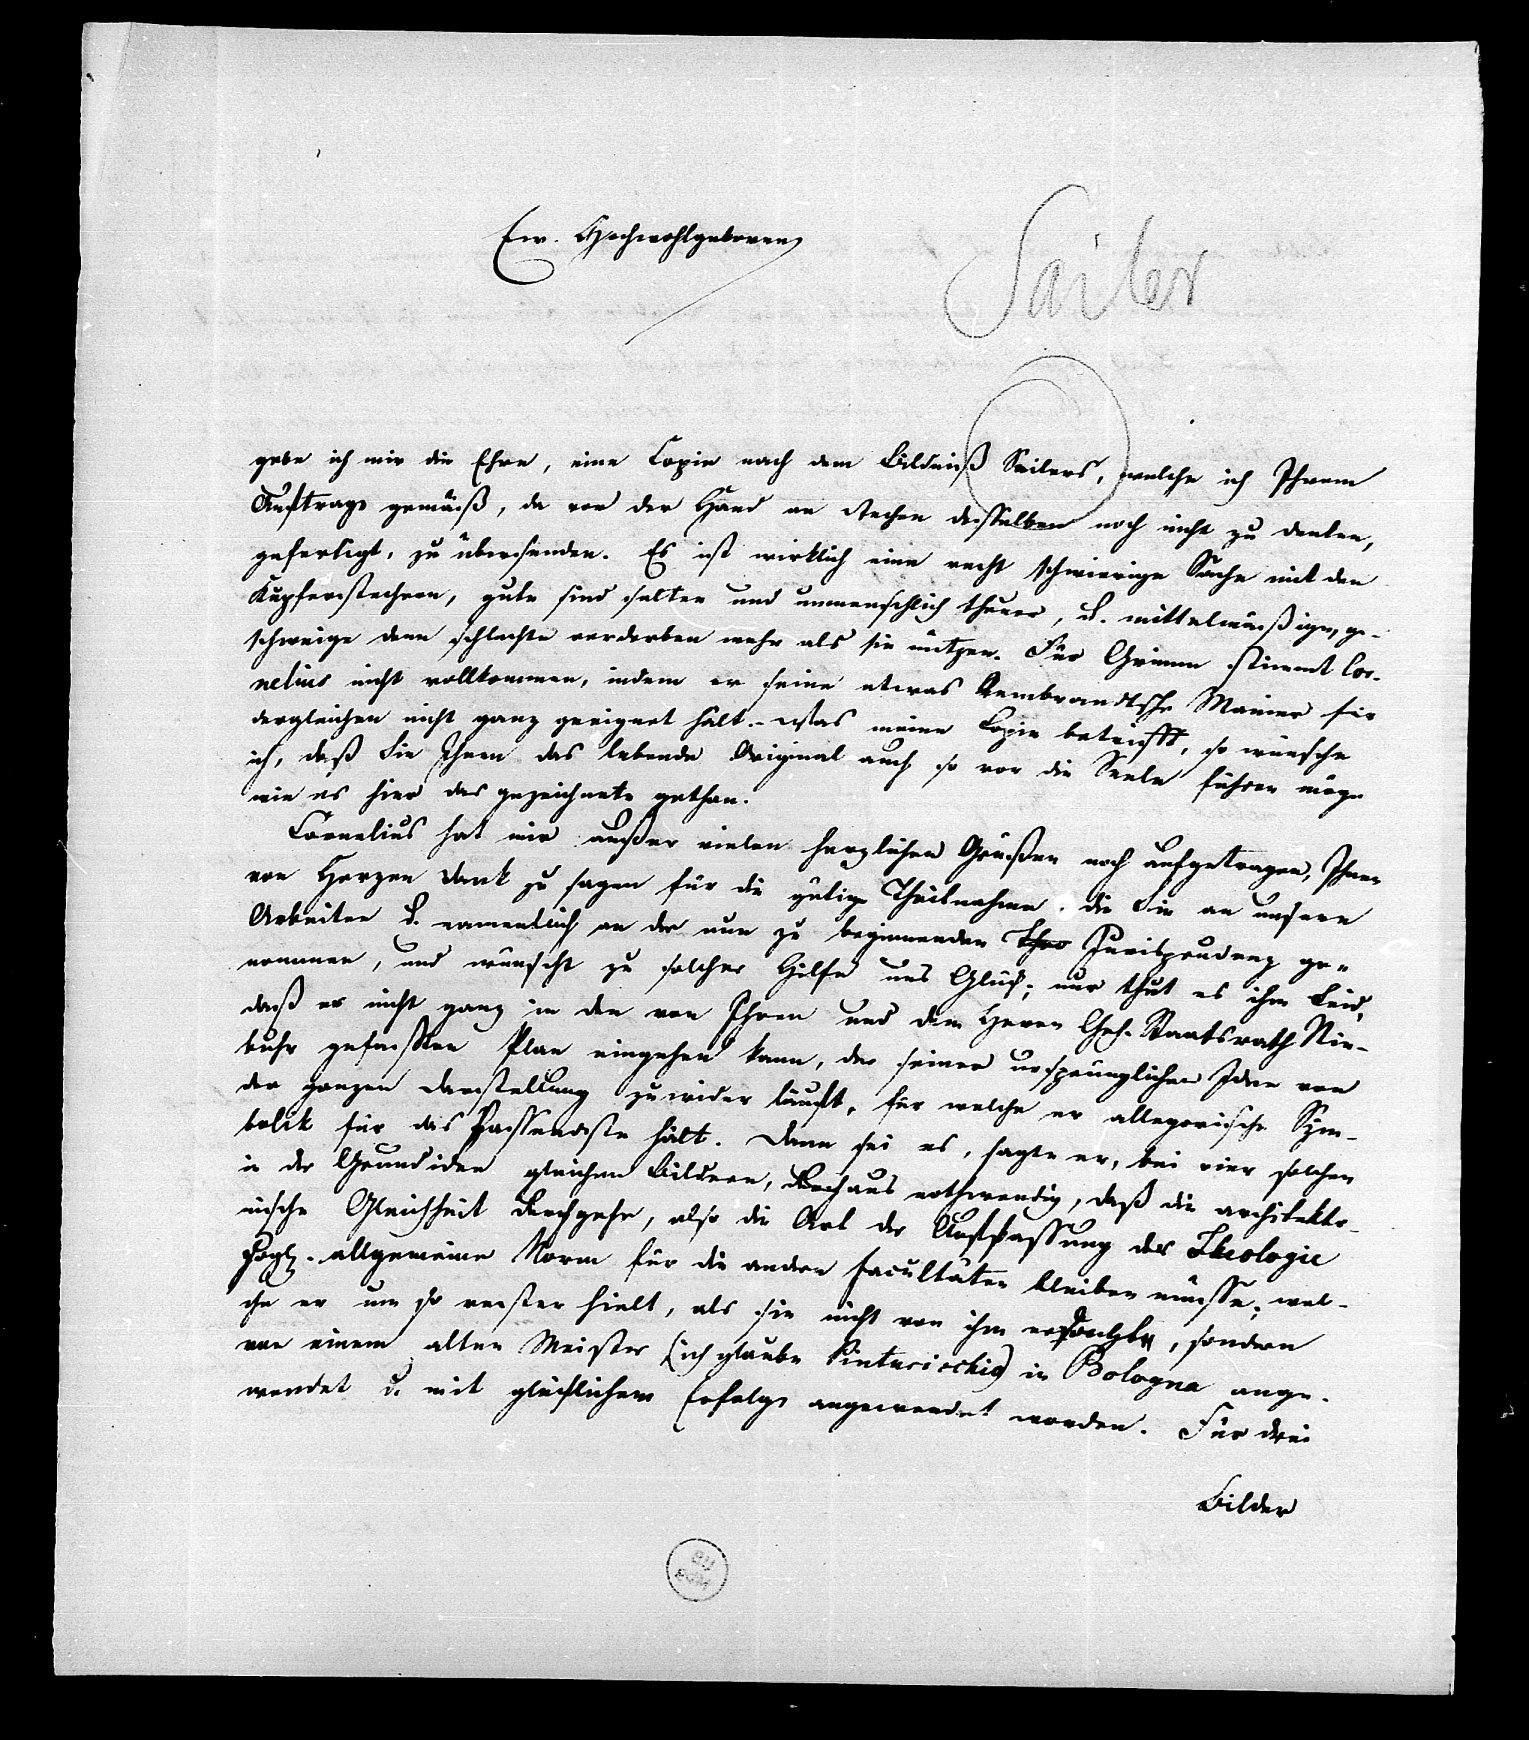 Ew. Hochwohlgeboren
Sailer
gebe ich mir die Ehre, eine Copie nach dem Bildniß Sailers, welche ich Ihrem
Auftrage gemäß, da von der Hand an Stechen desselben noch nicht zu denken,
gefertigt, zu übersenden. Es ist wirklich eine recht schwierige Sache mit den
Kupferstechern, gute sind selten und unmenschlich theuer, u. mittelmäßige, ge-
schweige denn schlechte verderben mehr als sie nützen. Für Grimm stimmt Cor-
nelius nicht vollkommen, indem er seine etwas Rembrandtsche Manier für
dergleichen nicht ganz geeignet hält. – Was meine Copie betrifft, so wünsche
ich, daß Sie Ihnen das lebende Original auch so vor die Seele führen möge
wie es hier das gezeichnete gethan.
Cornelius hat mir außer vielen herzlichen Grüßen noch aufgetragen, Ihnen
von Herzen Dank zu sagen für die gütige Theilnahme, die Sie an unsern
Arbeiten u. namentlich an der nun zu beginnenden Theo Jurisprudenz ge-
nommen, und wünscht zu solcher Hilfe uns Glück; nur thut es ihm Leid,
daß er nicht ganz in den von Ihnen und dem Herrn Geh. Staatsrath Nie-
buhr gefaßten Plan eingehen kann, der seiner ursprünglichen Idee von
der ganzen Darstellung zuwider läuft, für welche er allegorische Sym-
bolik für das Passendste hält. Denn sei es, sagte er, bei vier solchen
in der Grundidee gleichen Bildern, durchaus nothwendig, daß die architekto-
nische Gleichheit durchgehe, also die Art der Auffassung der Theologie
allgemeine Norm für die andern Facultäten bleiben müsse; wel-
che er um so vester hielt, als sie nicht von ihm , sondern
von einem alten Meister (ich glaube Pinturicchio) in Bologna ange-
wendet u. mit glücklichem Erfolge angewendet worden. Für drei
Bilder